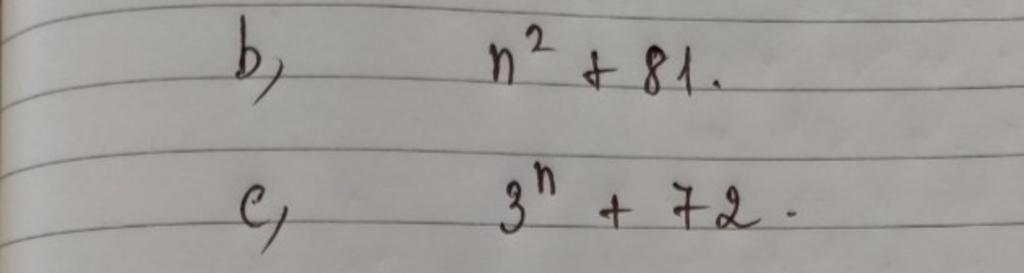 b, n² + 81.
c, 3ⁿ + 72.